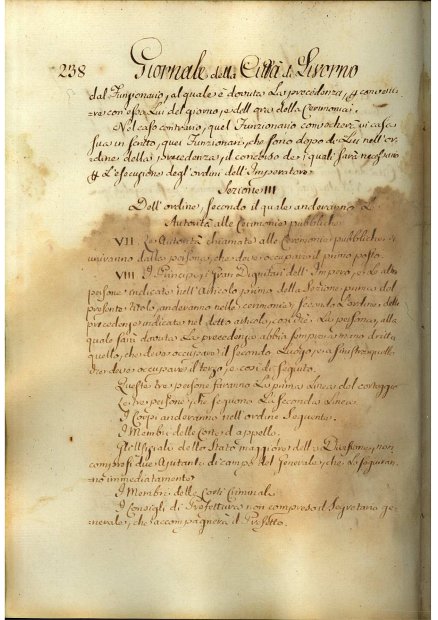 238 Giornale della Città di Livorno
dal Funzionario, al quale è dovuta la precedenza, p convenire
con esso Lui del giorno, e dell'ora della Ceremonia.
Nel caso contrario, quel Funzionario convocherà in casa
sua in scritto, quei Funzionari, che sono dopo di Lui nell'or
dine della precedenza, il concorso de i quali sarà necessario
p l'esecuzione degli ordini dell'Imperatore.
Sezione III
Dell'ordine, secondo il quale anderanno Le
Autorità alle Cerimonie pubbliche
VII. Le Autorità chiamate alle Ceremonie pubbliche, si
uniranno dalla persona, che deve occupare il primo posto.
VIII. I Principi, i Gran Dignitari dell'Impero, e Le altre
persone indicate nell'Articolo primo della Sezione prima del
presente titolo, anderanno nelle cerimonie, secondo l'ordine delle
precedenze indicate nel detto articolo, così che La persona, alla
quale sarà dovuta La precedenza abbia sempre a mano dritta
quello, che deve occupare il secondo Luogo, e a sinistra quello
che deve occupare il terzo, e così di seguito.
Queste tre persone faranno La prima Linea del corteggio
Le tre persone, che seguono La seconda Linea.
I Corpi anderanno nell'ordine seguente.
I Membri delle Corti d'appello.
Gl'Uffiziali dello Stato maggiore della Divisione, non
compresi due Ajutanti di campo del Generale, che Lo seguiran
no immediatamente
I Membri delle Corti Criminali
I Consigli di Prefettura non compreso il Segretario ge-
nerale, che accompagnerà il Prefetto.